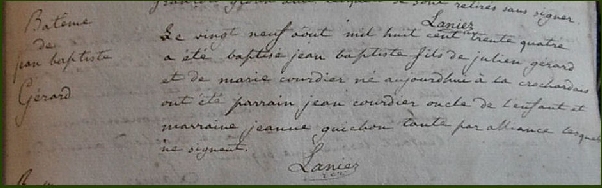 se sont retirés sans signer.
Lanier
Batême
de
jean baptiste
Gérard
Le vingt neuf aout mil huit cent trente quatre
a été baptisé jean baptiste fils de julien gérard
et de marie courdier né aujourdhui à la crochardais
ont été parrain jean courdier oncle de l'enfant et
marraine jeanne guichon tante par alliance lesquels
ne signent.
Lanier